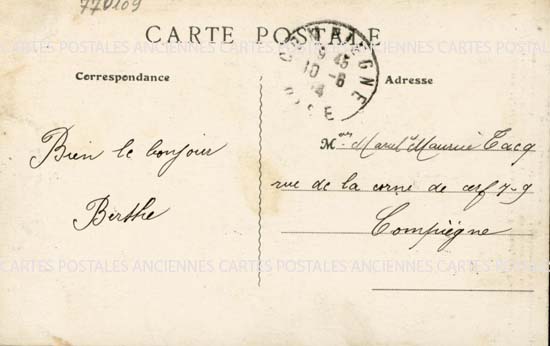 770109
CARTE POSTALE
COMPIÈGNE
19 45
10 -6
14
OISE
Correspondance
Adresse
Bien le bonjour
Berthe
Mrs Marel Maurice Tacq
rue de la corne de cerf 7-9
Compiègne
CARTES POSTALES ANCIENNES CARTES POSTALES ANCIENNES CARTES POSTALES ANCIENNES
CARTES POSTALES ANCIENNES CARTES POSTALES ANCIENNES CARTES POSTALES ANCIENNES